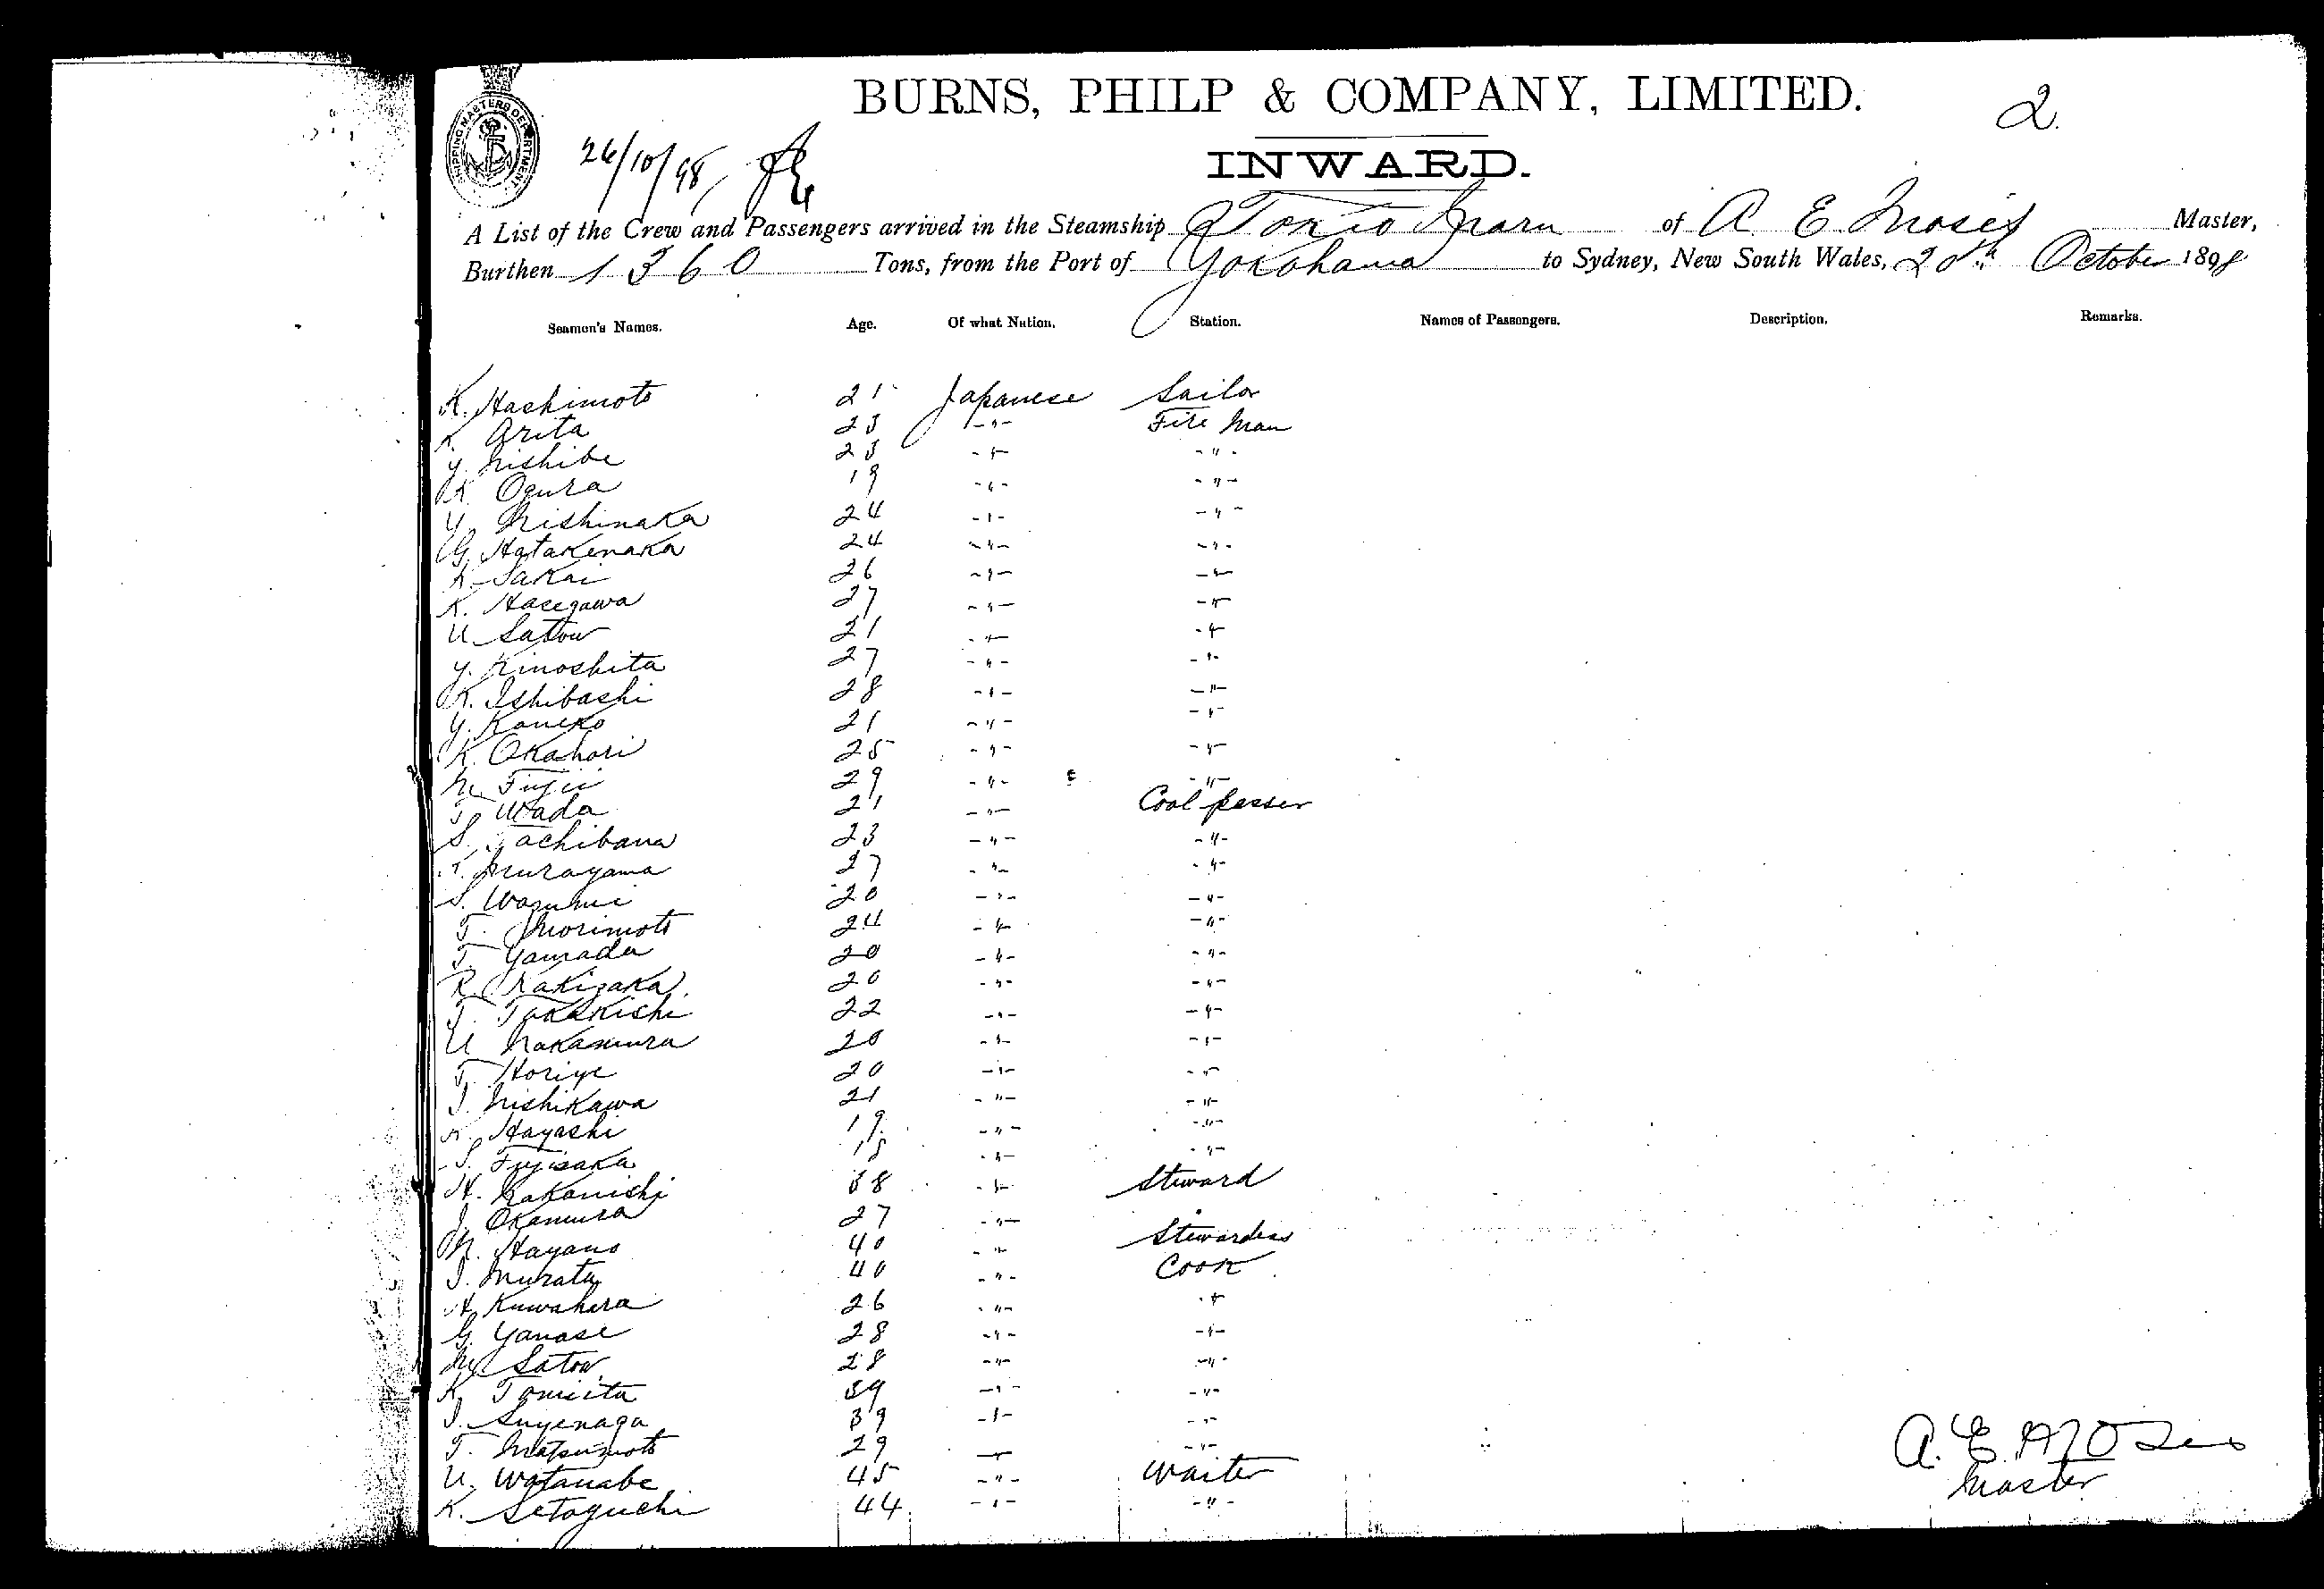 BURNS, PHILP & COMPANY, LIMITED.
2.
SHIPPING MASTERS DEPARTMENT
26/10/98
INWARD.
A List of the Crew and Passengers arrived in the Steamship Tokio Maru of A. E. Moses Master,
Burthen 1360 Tons, from the Port of Yokohama to Sydney, New South Wales, 20th October 1898
Seamen's Names. Age. Of what Nation. Station. Names of Passengers. Description. Remarks.
K. Hashimoto 21 Japanese Sailor
K. Arita 23 -"- Fire Man
Y. Nishibe 23 -"- -"-
K. Ogura 19 -"- -"-
Y. Nishinaka 24 -"- -"-
G. Hatakenaka 24 -"- -"-
K. Sakai 26 -"- -"-
K. Hasegawa 27 -"- -"-
U. Satow 21 -"- -"-
Y. Kinoshita 27 -"- -"-
K. Ishibashi 28 -"- -"-
Y. Kaneko 21 -"- -"-
K. Okahori 25 -"- -"-
N. Fujii 29 -"- -"-
T. Wada 21 -"- Coal passer
S. Tachibana 23 -"- -"-
T. Murayama 27 -"- -"-
S. 20 -"- -"-
T. Morimoto 24 -"- -"-
T. Yamada 20 -"- -"-
R. Kakizaka 20 -"- -"-
T. Takakichi 22 -"- -"-
U. Nakamura 20 -"- -"-
T. Horiye 20 -"- -"-
I. Nishikawa 21 -"- -"-
K. Hayashi 19 -"- -"-
S. Fujisaka -"- -"-
H. Nakanishi 38 -"- Steward
J. Okamura 27 -"- "
N. Hayano 40 -"- Stewardess
I. Murata 40 -"- Cook
H. Kuwahara 26 -"- -"-
G. Yanase 28 -"- -"-
M. Satow 28 -"- -"-
K. Tomiita 39 -"- -"-
I. Suyenaga 39 -"- -"-
T. Matsumoto 29 -"- -"-
U. Watanabe 45 -"- Waiter
K. Setoguchi 44 -"- -"-
A. E. Moses
Master